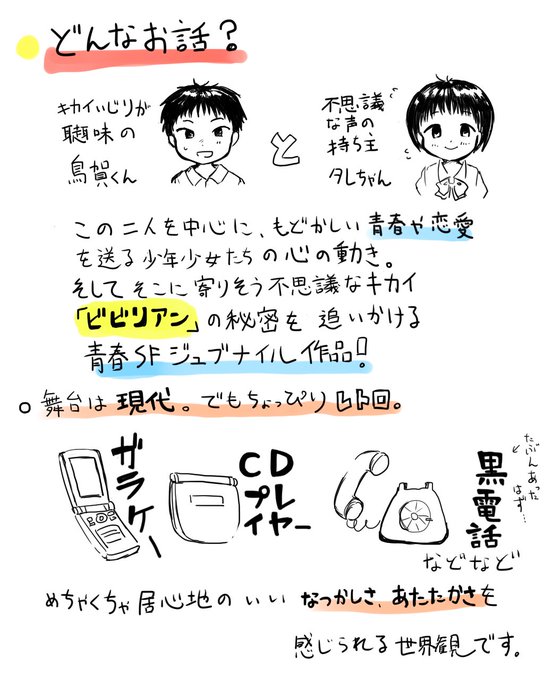 どんなお話？
キカイいじりが
趣味の
鳥賀くん
と
不思議
な声の
持ち主
タレちゃん
この二人を中心に、もどかしい青春や恋愛
を送る少年少女たちの心の動き。
そしてそこに寄りそう不思議なキカイ
「ビビリアン」の秘密を追いかける
青春SFジュブナイル作品!
舞台は現代。でもちょっぴりレトロ。
ガラケー
CD
プレ
イヤー
黒電話
たぶんあった
はず…
などなど
めちゃくちゃ居心地のいいなつかしさ、あたたかさを
感じられる世界観です。